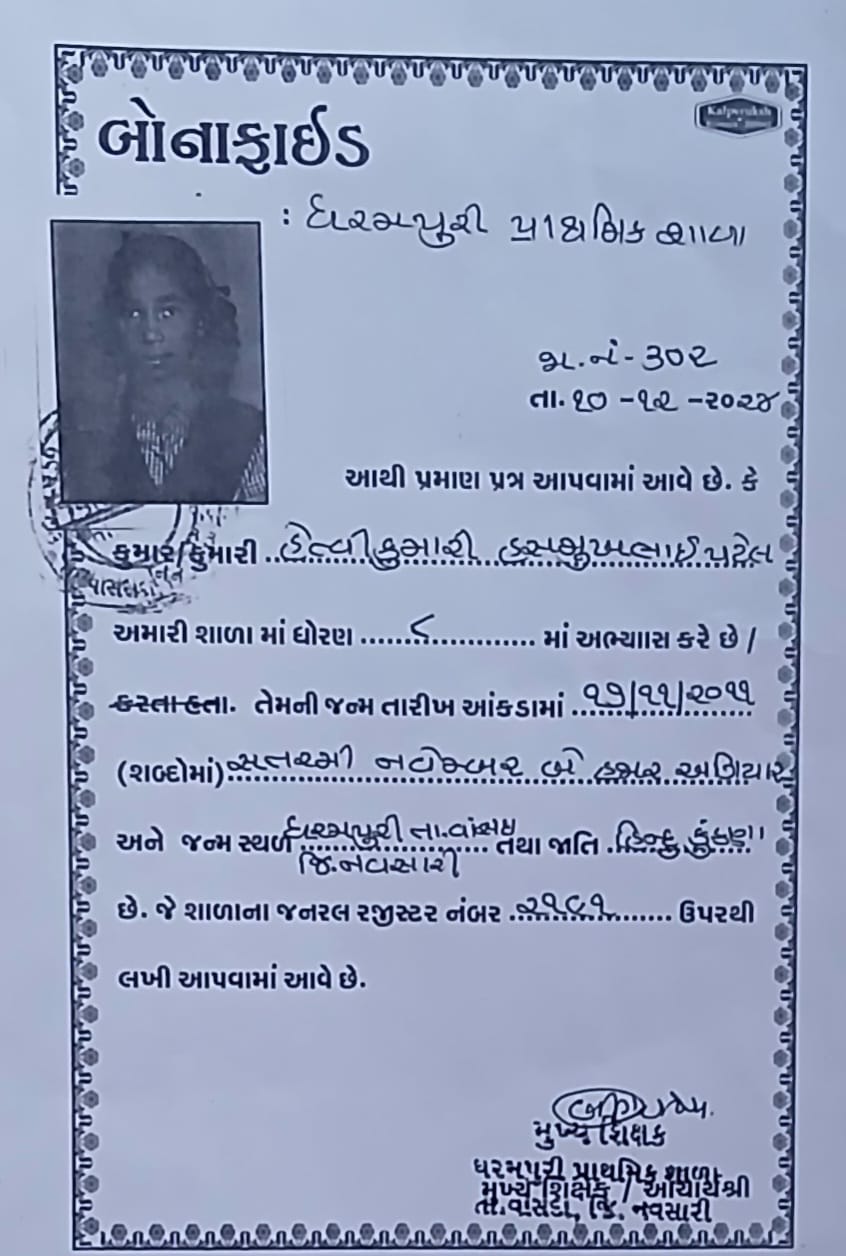 બોનાફાઈડ
Kalpvruksh
: ધરમપુરી પ્રાથમિક શાળા
જા.નં- ૩૦૨
તા. ૧૦ -૧૨ -૨૦૨૪
આથી પ્રમાણ પત્ર આપવામાં આવે છે. કે
કુમાર/કુમારી ..હેત્વીકુમારી હસમુખભાઈ પટેલ
અમારી શાળા માં ધોરણ ......૮............ માં અભ્યાસ કરે છે /
કરતા હતા. તેમની જન્મ તારીખ આંકડામાં ..૧૭/૧૧/૨૦૧૧
(શબ્દોમાં) સતરમી નવેમ્બર બે હજાર અગિયાર
અને જન્મ સ્થળ ધરમપુરી તા.વાંસદા તથા જાતિ .હિન્દુ કુંકણા
જિ.નવસારી
છે. જે શાળાના જનરલ રજીસ્ટર નંબર ..૨૧૮૧........ ઉપરથી
લખી આપવામાં આવે છે.
મુખ્ય શિક્ષક
ધરમપુરી પ્રાથમિક શાળા
મુખ્ય શિક્ષક / આચાર્યશ્રી
તા.વાંસદા, જિ. નવસારી